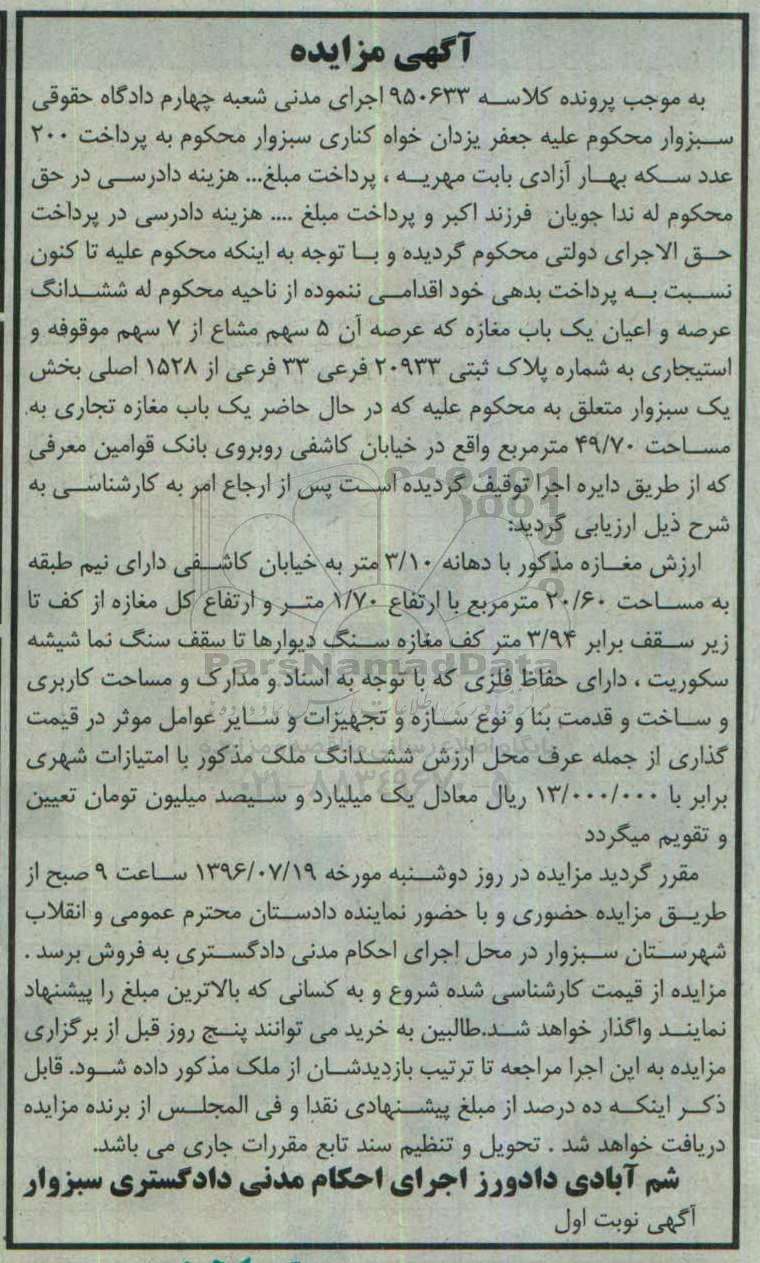 آگهی مزایده
به موجب پرونده کلاسه ۹۵۰۶۳۳ اجرای مدنی شعبه چهارم دادگاه حقوقی
سبزوار محکوم علیه جعفر یزدان خواه کناری سبزوار محکوم به پرداخت ۲۰۰
عدد سکه بهار آزادی بابت مهریه ، پرداخت مبلغ... هزینه دادرسی در حق
محکوم له ندا جویان فرزند اکبر و پرداخت مبلغ .... هزینه دادرسی در پرداخت
حق الاجرای دولتی محکوم گردیده و با توجه به اینکه محکوم علیه تا کنون
نسبت به پرداخت بدهی خود اقدامی ننموده از ناحیه محکوم له ششدانگ
عرصه و اعیان یک باب مغازه که عرصه آن ۵ سهم مشاع از ۷ سهم موقوفه و
استیجاری به شماره پلاک ثبتی ۲۰۹۳۳ فرعی ۳۳ فرعی از ۱۵۲۸ اصلی بخش
یک سبزوار متعلق به محکوم علیه که در حال حاضر یک باب مغازه تجاری به
مساحت ۴۹/۷۰ مترمربع واقع در خیابان کاشفی روبروی بانک قوامین معرفی
که از طریق دایره اجرا توقیف گردیده است پس از ارجاع امر به کارشناسی به
شرح ذیل ارزیابی گردید:
ارزش مغازه مذکور با دهانه ۳/۱۰ متر به خیابان کاشفی دارای نیم طبقه
به مساحت ۲۰/۶۰ مترمربع با ارتفاع ۱/۷۰ متر و ارتفاع کل مغازه از کف تا
زیر سقف برابر ۳/۹۴ متر کف مغازه سنگ دیوارها تا سقف سنگ نما شیشه
ParsNamadData
سکوریت ، دارای حفاظ فلزی که با توجه به اسناد و مدارک و مساحت کاربری
و ساخت و قدمت بنا و نوع سازه و تجهیزات و سایر عوامل موثر در قیمت
گذاری از جمله عرف محل ارزش ششدانگ ملک مذکور با امتیازات شهری
برابر با ۱۳/۰۰۰/۰۰۰ ریال معادل یک میلیارد و سیصد میلیون تومان تعیین
و تقویم میگردد
مقرر گردید مزایده در روز دوشنبه مورخه ۱۳۹۶/۰۷/۱۹ ساعت ۹ صبح از
طریق مزایده حضوری و با حضور نماینده دادستان محترم عمومی و انقلاب
شهرستان سبزوار در محل اجرای احکام مدنی دادگستری به فروش برسد .
مزایده از قیمت کارشناسی شده شروع و به کسانی که بالاترین مبلغ را پیشنهاد
نمایند واگذار خواهد شد.طالبین به خرید می توانند پنج روز قبل از برگزاری
مزایده به این اجرا مراجعه تا ترتیب بازدیدشان از ملک مذکور داده شود. قابل
ذکر اینکه ده درصد از مبلغ پیشنهادی نقدا و فی المجلس از برنده مزایده
دریافت خواهد شد . تحویل و تنظیم سند تابع مقررات جاری می باشد.
شم آبادی دادورز اجرای احکام مدنی دادگستری سبزوار
آگهی نوبت اول